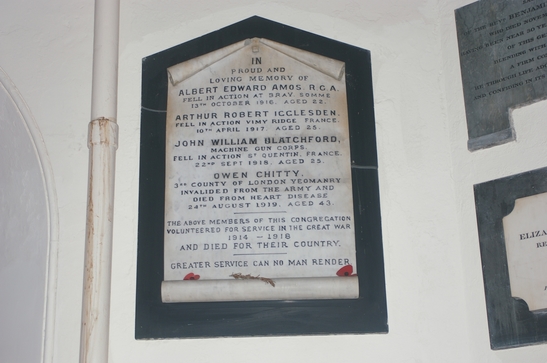 IN
PROUD AND
LOVING MEMORY OF
ALBERT EDWARD AMOS. R.G.A.
FELL IN ACTION AT BRAY. SOMME
13TH OCTOBER 1916. AGED 22.
ARTHUR ROBERT IGGLESDEN.
FELL IN ACTION VIMY RIDGE, FRANCE.
10TH APRIL 1917. AGED 25.
JOHN WILLIAM BLATCHFORD,
MACHINE GUN CORPS.
FELL IN ACTION ST QUENTIN, FRANCE.
22ND SEPT 1918. AGED 25.
OWEN CHITTY.
3RD COUNTY OF LONDON YEOMANRY
INVALIDED FROM THE ARMY AND
DIED FROM HEART DISEASE
24TH AUGUST 1919. AGED 43.
THE ABOVE MEMBERS OF THIS CONGREGATION
VOLUNTEERED FOR SERVICE IN THE GREAT WAR
1914 — 1918
AND DIED FOR THEIR COUNTRY.
GREATER SERVICE CAN NO MAN RENDER
BENJAMI
NEAR 30 YE
OF THIS DE
BLENDING WITH
A FIRM CO
LIFE
AND
IN ITS
ELIZA
RE